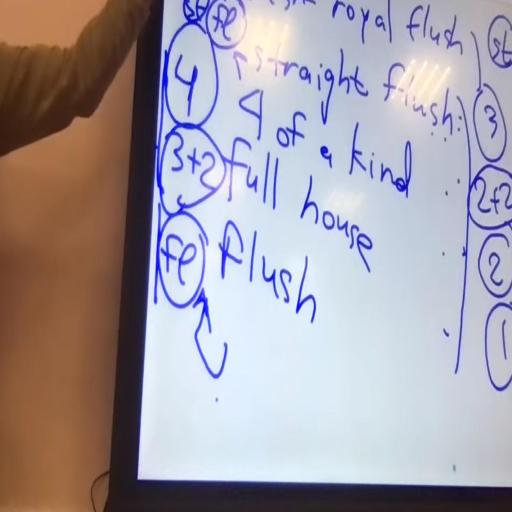 st fl royal flush
straight flush
4 4 of a kind
3+2 full house
fl flush
st
3
2+2
2
1